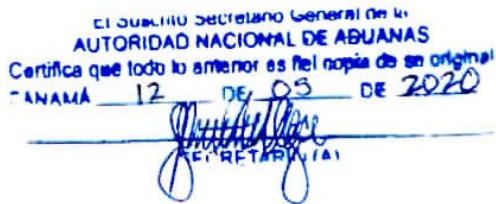 El Suscrito Secretario General de la
AUTORIDAD NACIONAL DE ADUANAS
Certifica que todo lo anterior es fiel copia de su original
PANAMÁ 12 DE 05 DE 2020
SECRETARIO (A)